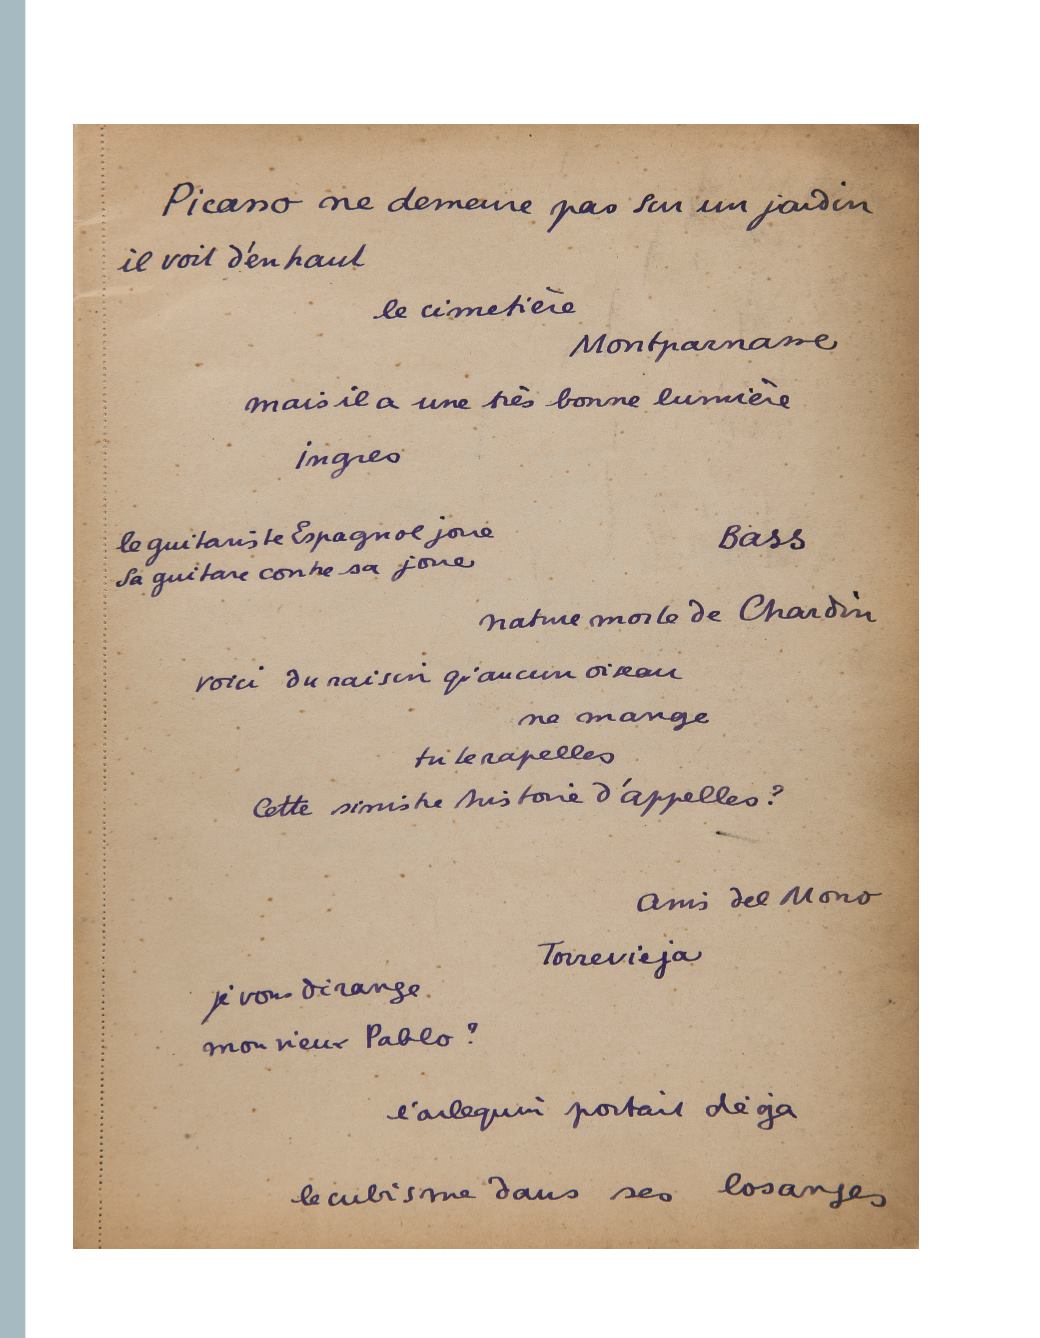 Picasso ne demeure pas sur un jardin
il voit d'en haut
le cimetière
Montparnasse
mais il a une très bonne lumière
ingres
le guitariste Espagnol joue
Bass
sa guitare contre sa joue
nature morte de Chardin
voici du raisin qu'aucun oiseau
ne mange
tu te rapelles
Cette sinistre histoire d'appelles?
Anis del Mono
Torrevieja
je vous dérange
monsieur Pablo?
l'arlequin portait déja
le cubisme dans ses losanges